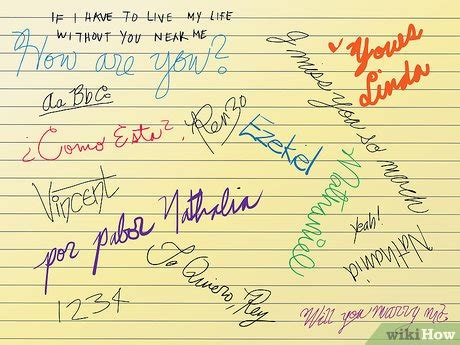 IF I HAVE TO LIVE MY LIFE
WITHOUT YOU NEAR ME
How are you?
Yours
Linda
I miss you so much
Aa Bb Cc
¿Como Esta?,
Renzo
Ezekiel
Nathaniel
Vincent
por pabor Nathalia
Yeah!
Nathania
To Quiero, Rey
1234
Will you marry me.
wikiHow